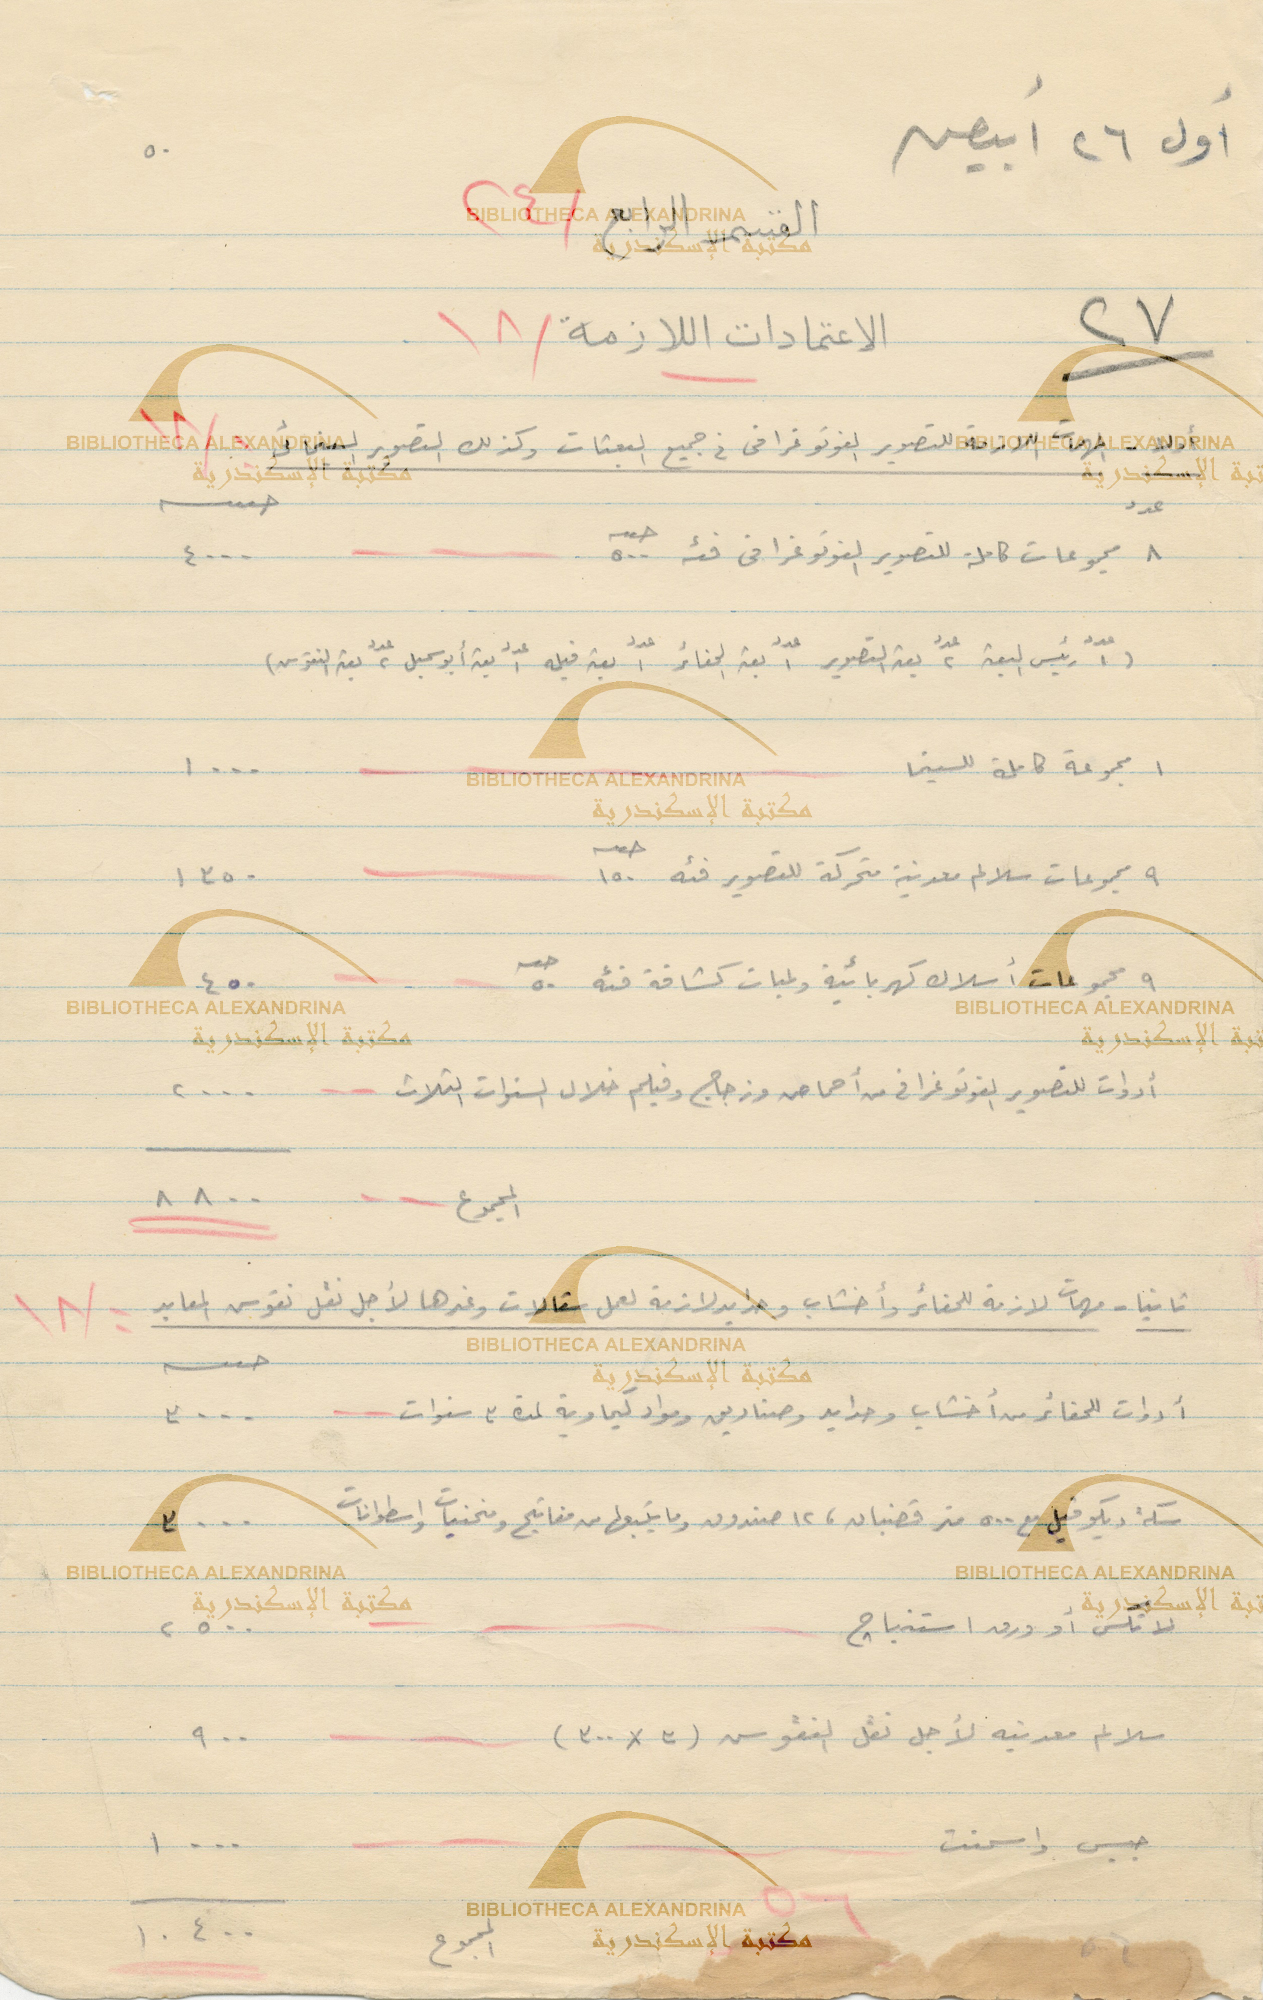 أول ٢٦ أبيض
٥٠
القسم الرابع /٢٤
٢٧
الاعتمادات اللازمة /١٨
أولا - المهمات اللازمة للتصوير الفوتوغرافى فى جميع البعثات وكذلك التصوير السينمائى /١٨
عدد جنيه
٨ مجموعات كاملة للتصوير الفوتوغرافى فئه ٥٠٠ جنيه ٤٠٠٠
(عدد ١ رئيس البعثة عدد ٢ بعثة التصوير عدد ١ بعثة الحفائر عدد ١ بعثة فيله عدد ١ بعثة أبو سمبل عدد ٢ بعثة النقوش)
١ مجموعة كاملة للسينما ١٠٠٠
٩ مجموعات سلالم معدنية متحركة للتصوير فئه ١٥٠ جنيه ١٣٥٠
٩ مجموعات أسلاك كهربائية ولمبات كشافة فئه ٥٠ جنيه ٤٥٠
أدوات للتصوير الفوتوغرافى من أحماض وزجاج وفيلم خلال السنوات الثلاث ٢٠٠٠
المجموع ٨٨٠٠
ثانيا - مهمات لازمة للحفائر وأخشاب وحدايد لازمة لعمل سقالات وغيرها لأجل نقل نقوش المعابد /١٨
جنيه
أدوات للحفائر من أخشاب وحدايد وصناديق ومواد كيماوية لمدة ٣ سنوات ٣٠٠٠
سكة ديكوفيل مع ٥٠٠ متر قضبان ، ١٢ صندوق وما يتبعها من مفاتيح ومنحنيات واسطوانات ٣٠٠٠
لاتكس أو ورق استنباج ٢٥٠٠
سلالم معدنيه لأجل نقل النقوش (٣ × ٣٠٠) ٩٠٠
جبس واسمنت ١٠٠٠
٥٦
المجموع ١٠٤٠٠
٥٦
BIBLIOTHECA ALEXANDRINA
مكتبة الإسكندرية